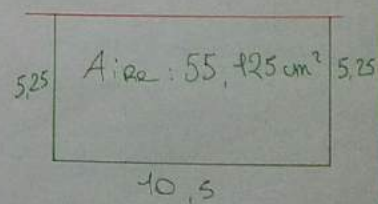 5,25 Aire : 55,125 cm² 5,25
10,5